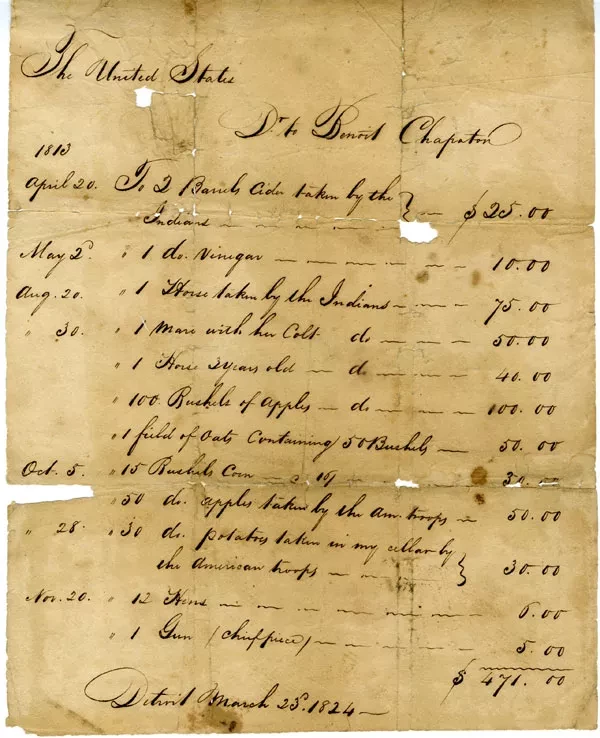 The United States
Dr. to Benoit Chapaton
1813
April 20. To 2 Barrels Cider taken by the
Indians — — — — — } — $25.00
May 2d. " 1 do. Vinegar — — — — — — 10.00
Aug. 20. " 1 Horse taken by the Indians — — — 75.00
" 30. " 1 Mare with her Colt do — — — 50.00
" 1 Horse 3 years old — do — — — 40.00
" 100 Bushels of Apples — do — — — 100.00
" 1 field of Oats Containing 50 Bushels — 50.00
Oct. 5. " 15 Bushels Corn — — 30.00
" 50 do. apples taken by the Am. troops — 50.00
" 28. " 30 do. potatoes taken in my cellar by
the American troops — — — } 30.00
Nov. 20. " 12 Hens — — — — — — 6.00
" 1 Gun — — — — 5.00
$ 471.00
Detroit March 23d. 1824 —